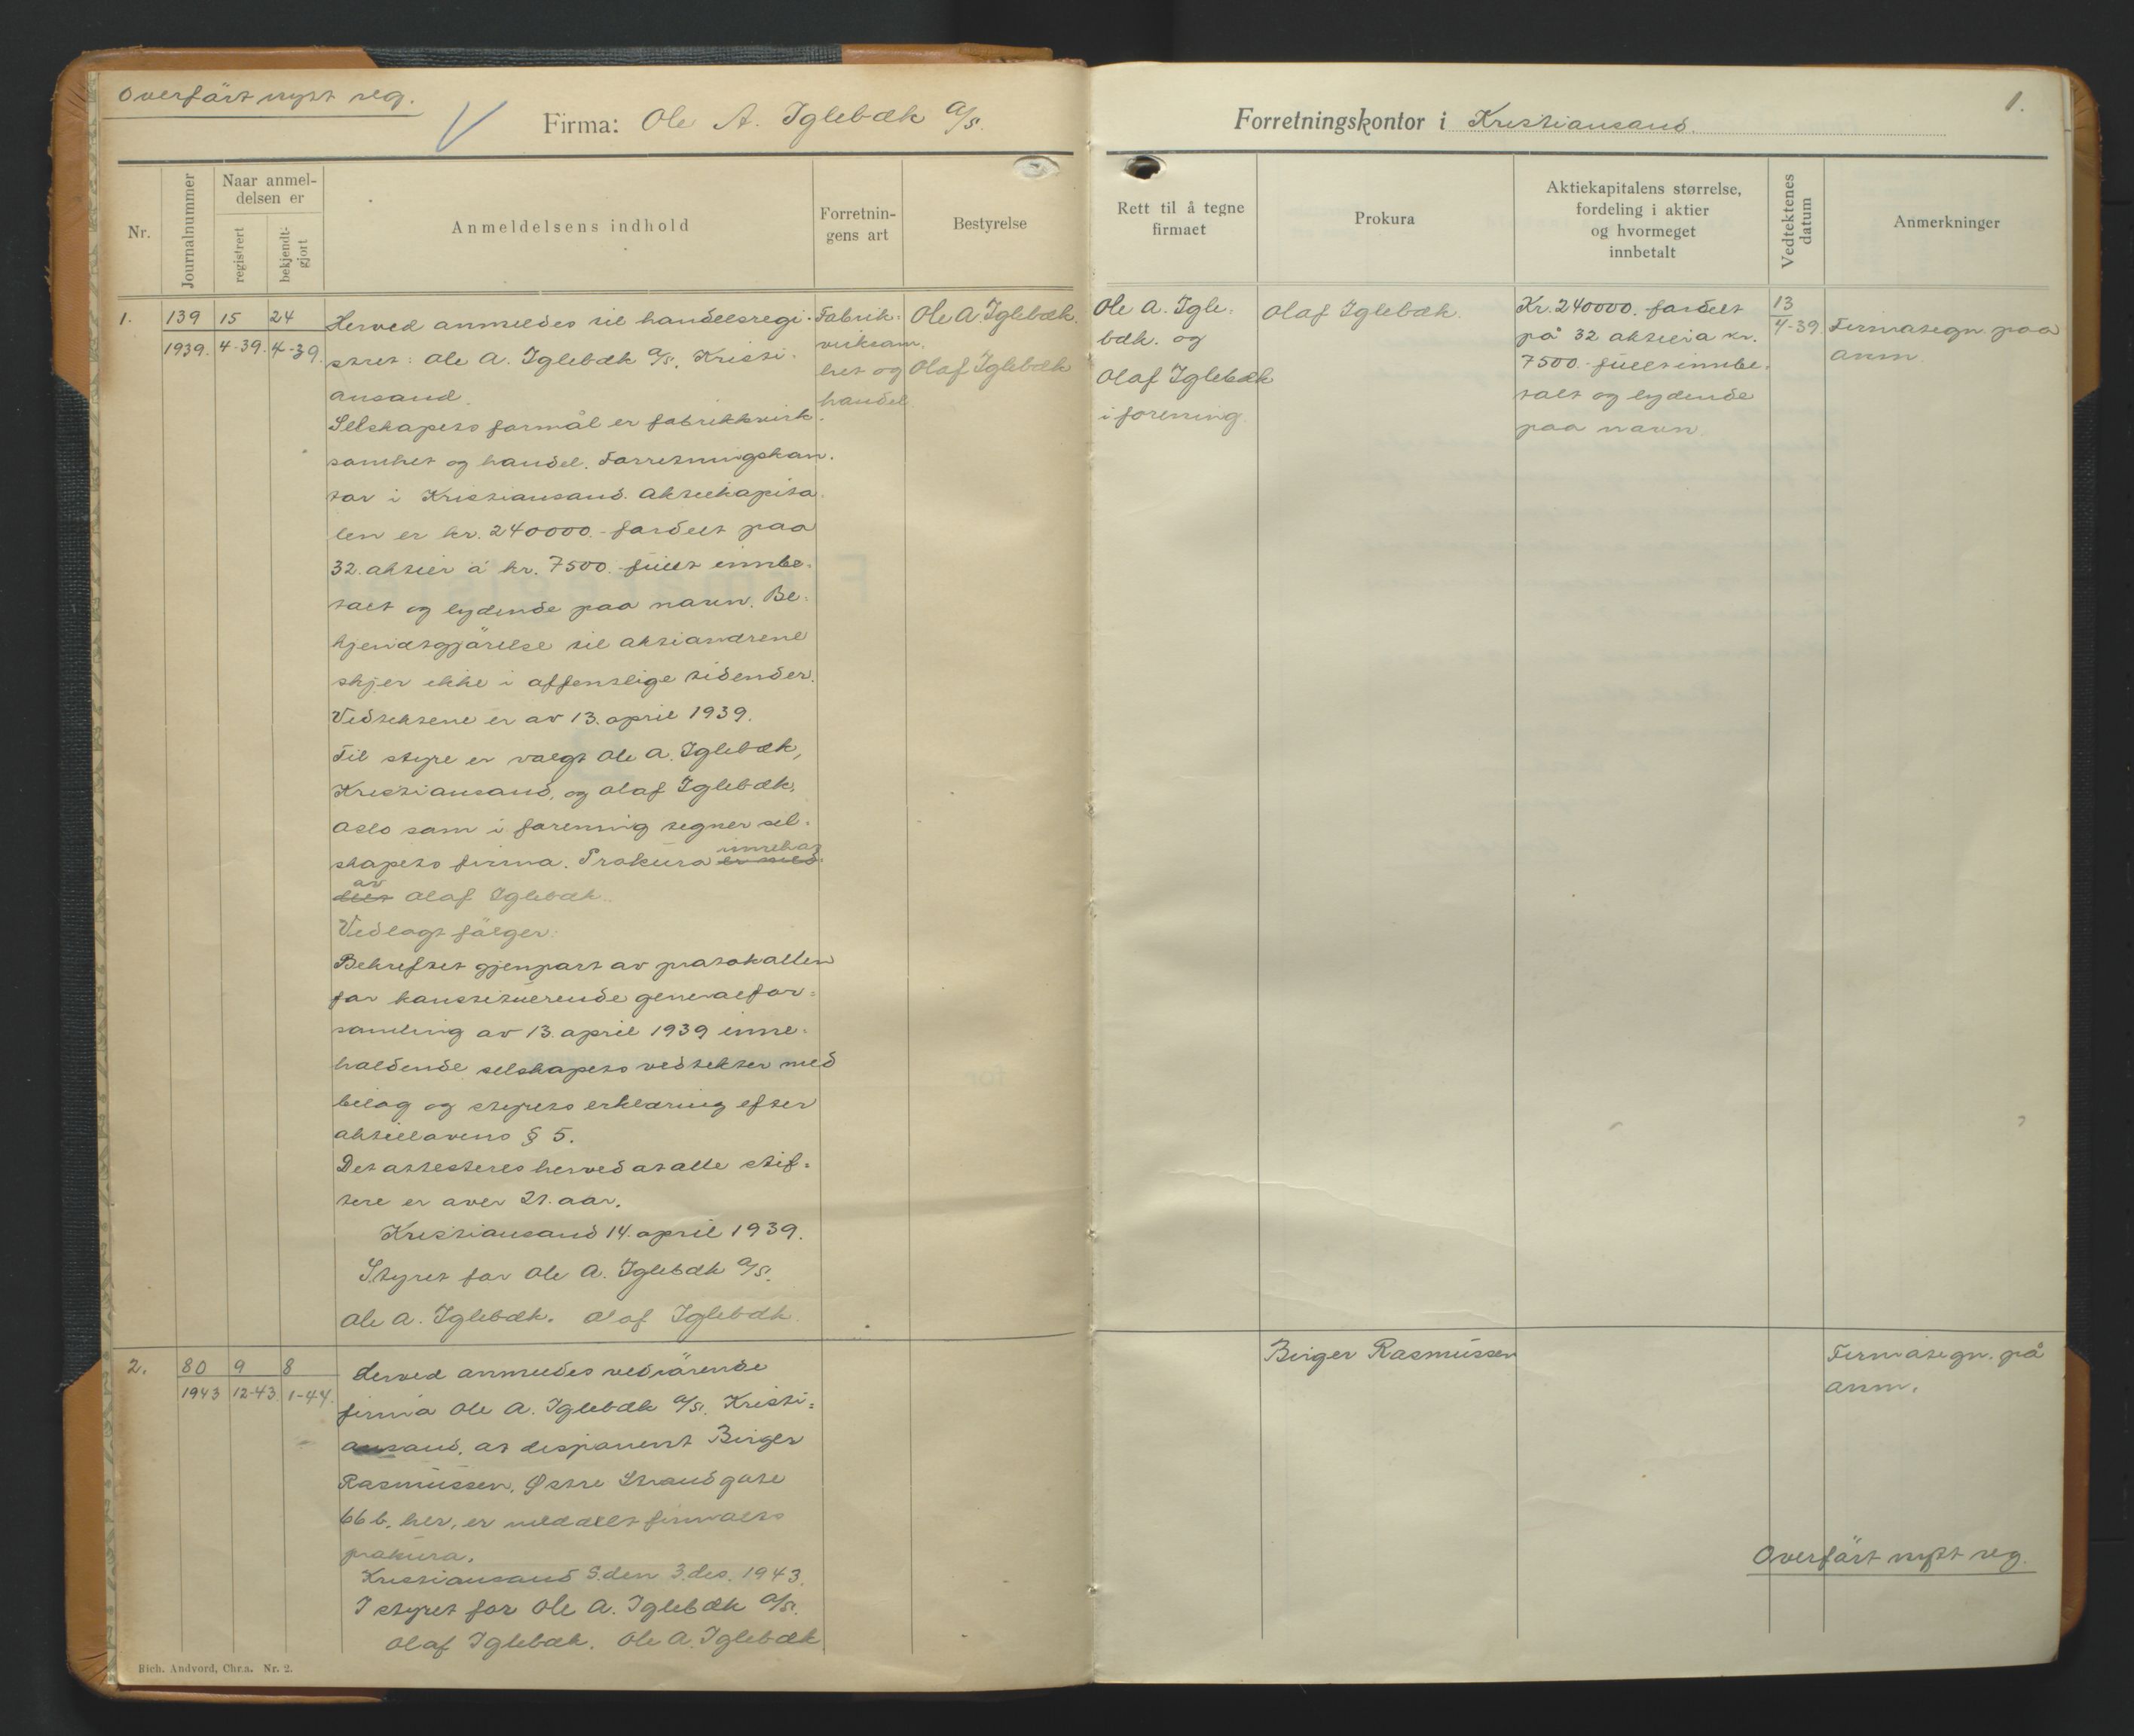 Overført nytt reg.
Firma: Ole A. Iglebæk a/s.
Forretningskontor i Kristiansand.
1.
Nr.
Journalnummer
Naar anmel-
delsen er
registrert
bekjendt-
gjort
Anmeldelsens indhold
Forretnin-
gens art
Bestyrelse
Rett til å tegne
firmaet
Prokura
Aktiekapitalens størrelse,
fordeling i aktier
og hvormeget
innbetalt
Vedtektenes
datum
Anmerkninger
1.
139
1939.
15
4-39.
24
4-39.
Herved anmeldes til handelsregi-
stret: Ole A. Iglebæk a/s, Kristi-
ansand.
Selskapets formål er fabrikkvirk-
somhet og handel. Forretningskon-
tor i Kristiansand. Aktiekapita-
len er kr. 240000.- fordelt paa
32 aktier à kr. 7500.- fullt innbe-
talt og lydende paa navn. Be-
kjendtgjørelse til aktionærene
skjer ikke i offentlige tidender.
Vedtektene er av 13. april 1939.
Til styre er valgt Ole A. Iglebæk,
Kristiansand, og Olaf Iglebæk,
Oslo som i forening tegner sel-
skapets firma. Prokura er med- innehas
delt av Olaf Iglebæk.
Vedlagt følger:
Bekreftet gjenpart av protokollen
for konstituerende generalfor-
samling av 13. april 1939 inne-
holdende selskapets vedtekter med
bilag og styrets erklæring efter
aktielovens § 5.
Det attesteres herved at alle stif-
tere er over 21. aar.
Kristiansand 14. april 1939.
Styret for Ole A. Iglebæk a/s.
Ole A. Iglebæk. Olaf Iglebæk.
Fabrik-
virksom-
het og
handel
Ole A. Iglebæk.
Olaf Iglebæk
Ole A. Igle-
bæk. og
Olaf Iglebæk
i forening.
Olaf Iglebæk.
Kr. 240000. fordelt
på 32 aktier à kr.
7500.- fullt innbe-
talt og lydende
paa navn.
13
4-39.
Firmategn. paa
anm.
2.
80
1943
9
12-43
8
1-44.
Herved anmeldes vedrørende
firma Ole A. Iglebæk a/s. Kristi-
ansand, at disponent Birger
Rasmussen, Østre Strandgate
66 b, her, er meddelt firmaets
prokura.
Kristiansand S. den 3. des. 1943.
I styret for Ole A. Iglebæk a/s.
Olaf Iglebæk. Ole A. Iglebæk
Birger Rasmussen
Firmategn. på
anm.
Overført nytt reg.
Rich. Andvord, Chr.a. Nr. 2.